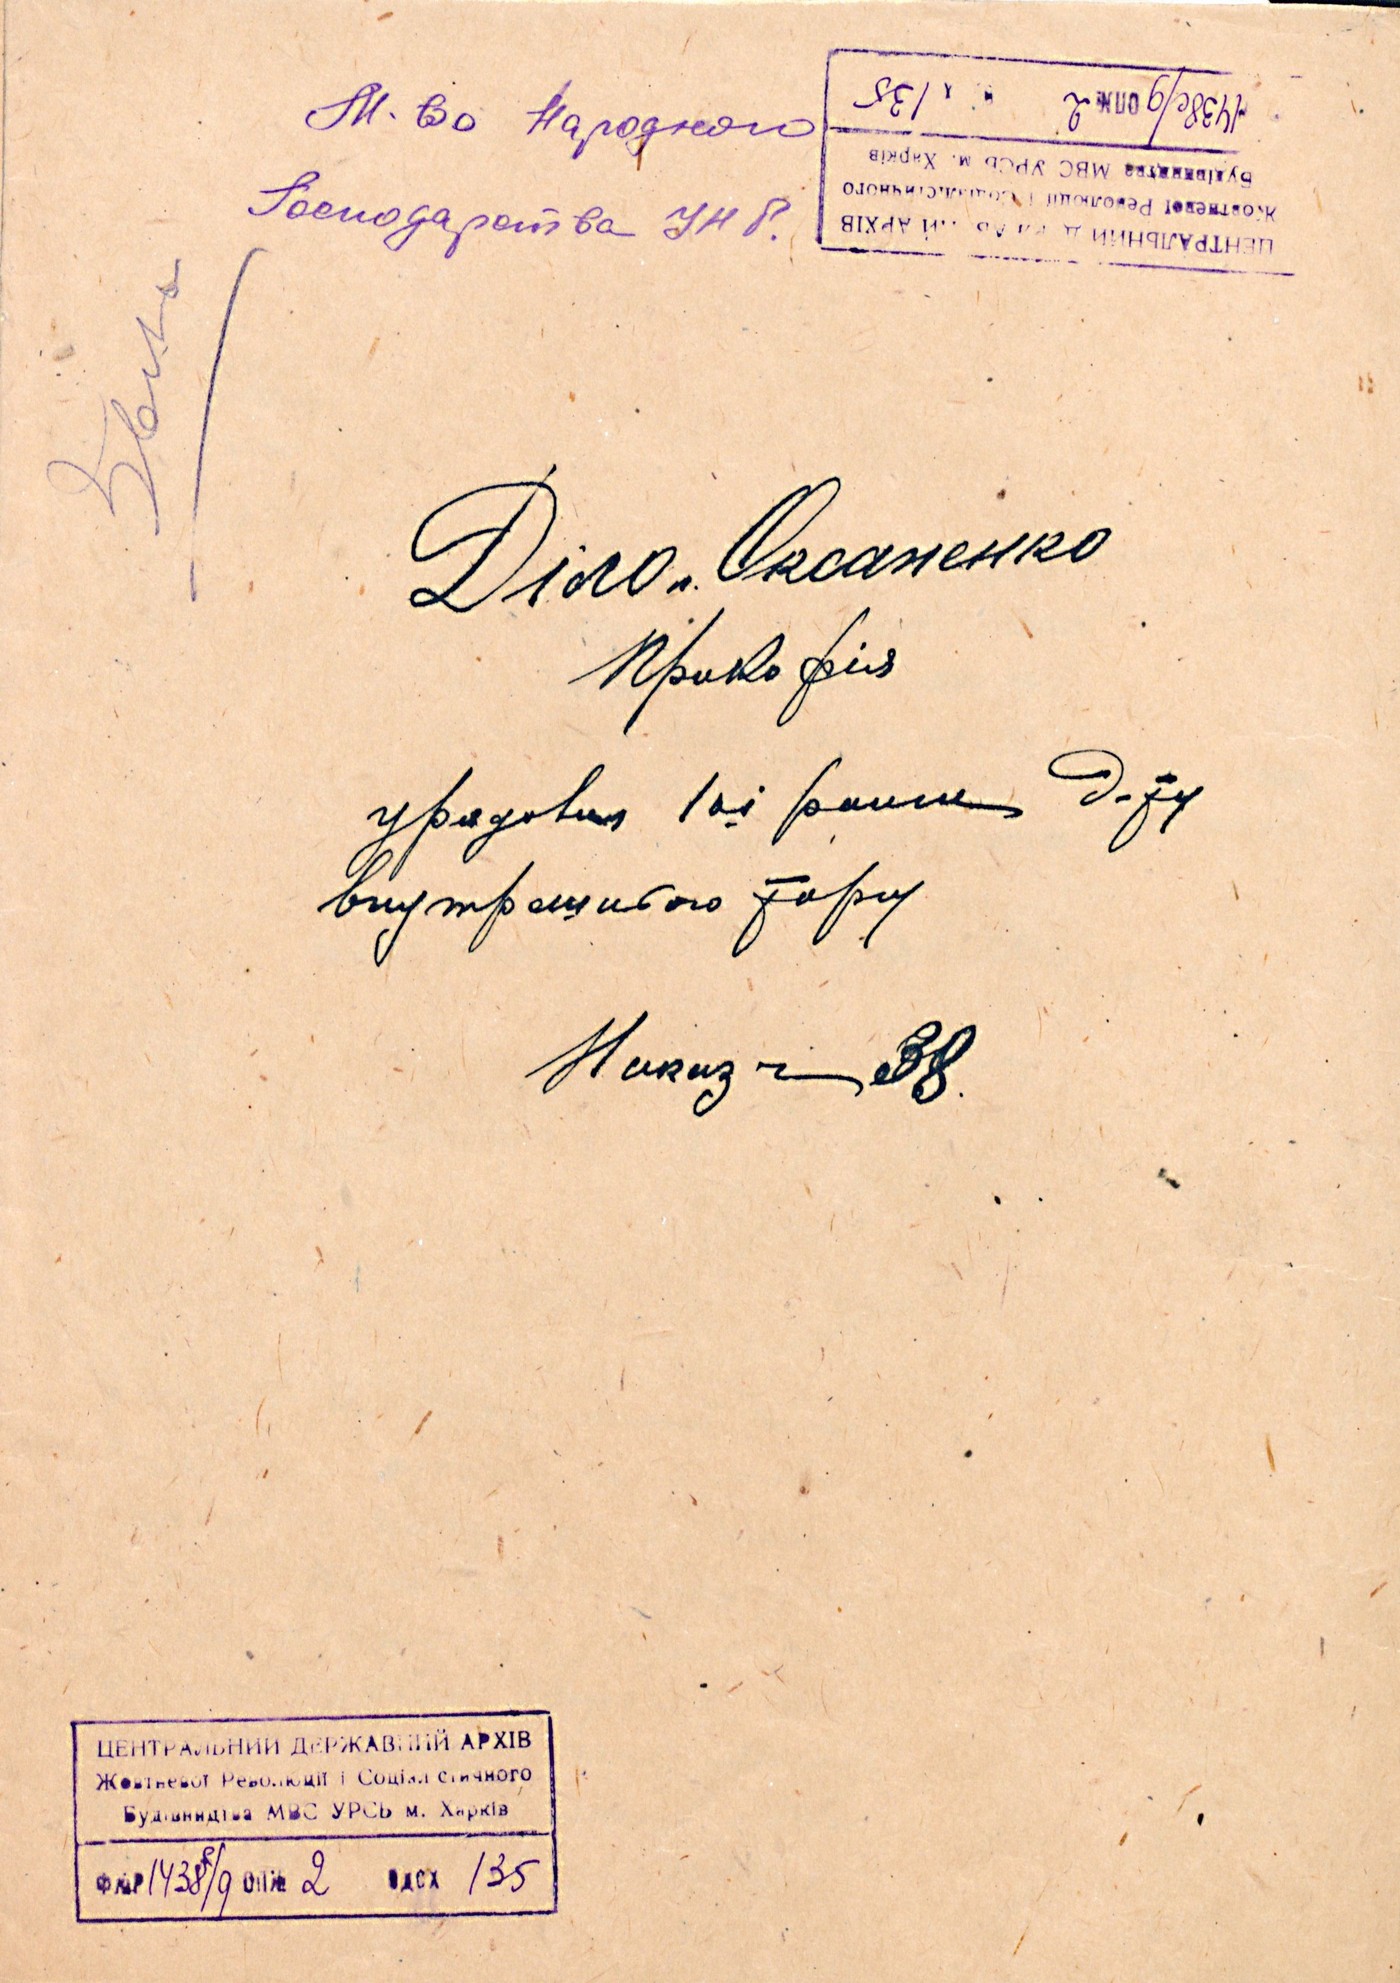 М-во Народного
Господарства УНР.
ЦЕНТРАЛЬНИЙ АРХІВ
Жовтневої Революції і Соціалістичного
Будівництва МВС УРСЬ м. Харків
1438с/9 ОПЖ 2 135
Діло Оксаненко
Прокофія
урядовця 1ої ранги Д-ту
внутрішнього торгу
Наказ ч 38.
ЦЕНТРАЛЬНИЙ ДЕРЖАВНИЙ АРХІВ
Жовтневої Революції і Соціалістичного
Будівництва МВС УРСЬ м. Харків
1438с/9 ОПЖ 2 ОДСХ 135